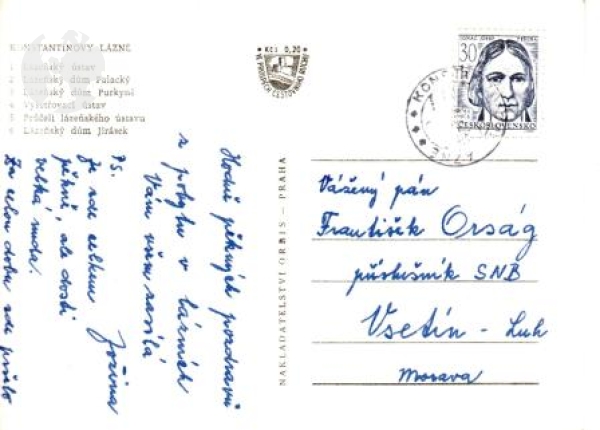 KONSTANTINOVY LÁZNĚ
1 Lázeňský ústav
2 Lázeňský dům Palacký
3 Lázeňský dům Purkyně
4 Vyšetřovací ústav
5 Průčelí lázeňského ústavu
6 Lázeňský dům Jirásek
Kčs 0,20
30
ČESKOSLOVENSKO
NAKLADATELSTVÍ ORBIS — PRAHA
Hodně pěkných pozdravů
z pobytu v lázních
Vám všem zasílá
Jořina
PS.
Je zde celkem
pěkně, ale dosti
velká nuda.
Za celou dobu zde pršelo
Vážený pán
František Orság
příslušník SNB
Vsetín - Luh
Morava